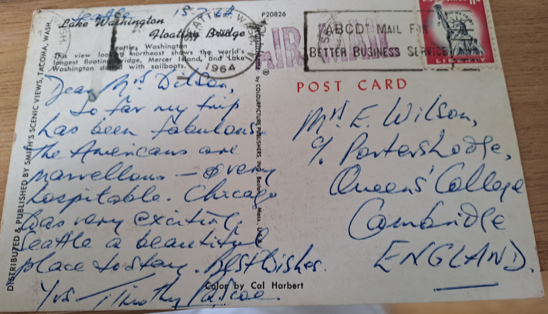 Seattle 15.7.64
Lake Washington
Floating Bridge
Seattle, Washington
This view looking northeast shows the world's
longest floating bridge, Mercer Island, and Lake
Washington dotted with sailboats.
P20826
1964
AIR MAIL
"ABCD" MAIL FOR
BETTER BUSINESS SERVICE
LIBERTY
POST CARD
Dear Mrs Wilson,
So far my trip
has been fabulous
the Americans are
marvellous – & very
hospitable. Chicago
was very exciting,
Seattle a beautiful
place to stay. Best Wishes.
Yrs. Timothy
Mrs E. Wilson,
c/o Porters Lodge,
Queens' College
Cambridge
ENGLAND.
DISTRIBUTED & PUBLISHED BY SMITH'S SCENIC VIEWS, TACOMA, WASH.
COLOURPICTURE PUBLISHERS, Boston, Mass., U.S.A.
Color by Cal Harbert